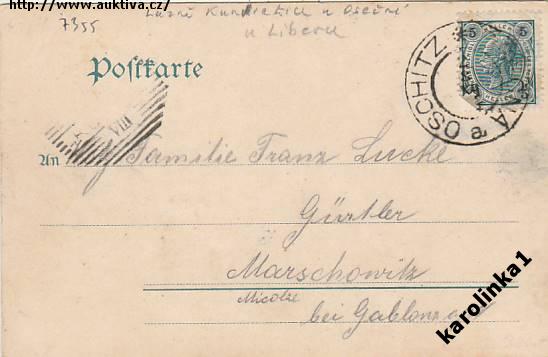 http://www.auktiva.cz/
7355
Lázně Kundratice u Osečné
u Liberce
Postkarte
5 5
OSCHITZ
VIII
An Familie Franz Lucke
Gürtler
Marschowitz
bei Gablonz a
karolinka1